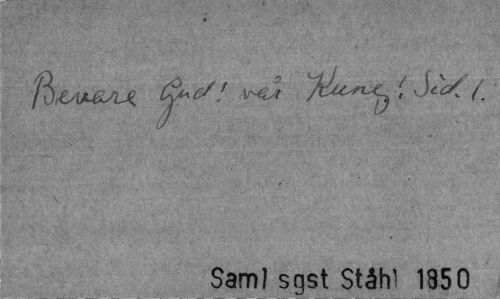 Bevare Gud! vår Kung! Sid. 1.
Saml sgst Ståhl 1850